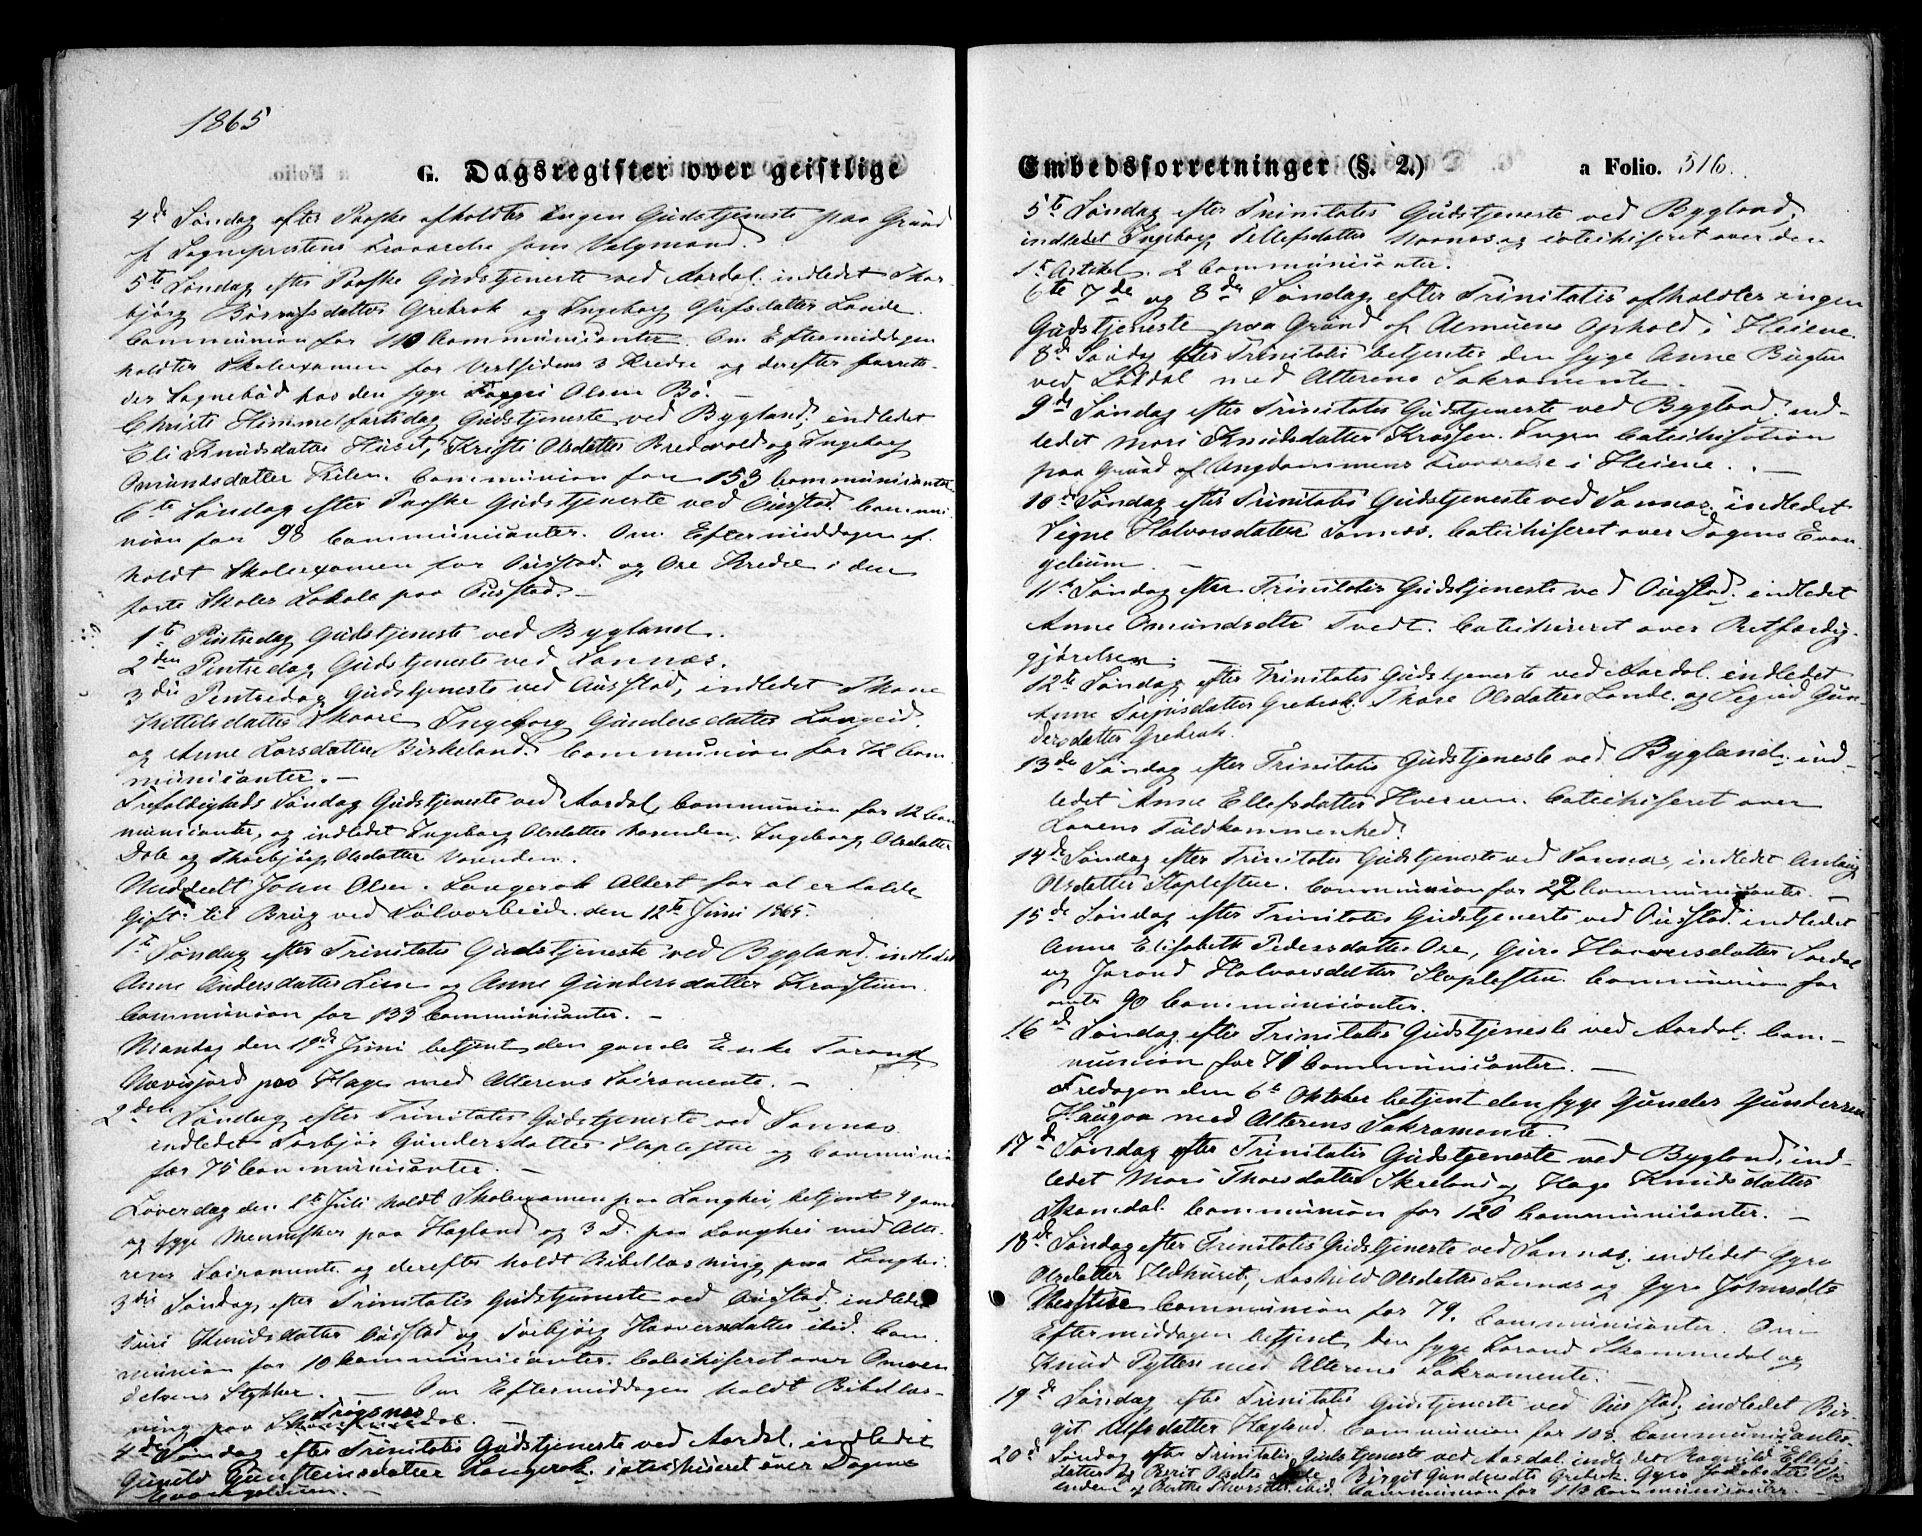 1865
G. Dagsregister over geistlige
4de Søndag efter Paaske afholdtes ingen Gudstjeneste paa Grund
af Sognepræstens Fraværelse som Valgmand.
5te Søndag efter Paaske Gudstjeneste ved Aardal. indledet Thor-
bjørg Grebrok og Ingeborg Lande.
Communion for 110 Communicanter. Om Eftermiddagen
holdtes Skoleexamen for Vestsidens 3 Kredse og derefter forrette-
des Sognebud hos den syge Olsen Bø. —
Christi Himmelfartsdag Gudstjeneste ved Bygland, indledet
Eli Knudsdatter Huset, Kristi Olsdatter Bredvold og Ingeborg
Omundsdatter Kilen. Communion for 153 Communicanter
6te Søndag efter Paaske Gudstjeneste ved Ousstad. Commu-
nion for 98 Communicanter. Om Eftermiddagen af-
holdt Skoleexamen for Ousstad og Ose Kredse i den
faste Skoles Lokale paa Ousstad. —
1te Pintsedag Gudstjeneste ved Bygland.
2den Pintsedag Gudstjeneste ved Sannæs.
3die Pintsedag Gudstjeneste ved Ousstad, indledet Thone
Kittilsdatter Skaare, Ingeborg Gundersdatter Langeid
og Anne Larsdatter Birkeland. Communion for 72 Com-
municanter. —
Trefoldigheds Søndag Gudstjeneste ved Aardal, Communion for 12 Com-
municanter, og indledet Ingeborg Olsdatter Ingeborg Olsdatter
Dale og Thorbjørg Olsdatter
Meddeelt John Olsen Langerok Attest for at erholde
Gift til Brug ved den 12te Juni 1865.
1te Søndag efter Trinitatis Gudstjeneste ved Bygland, indledet
Anne Andersdatter Liem og Anne Gundersdatter
Communion for 133 Communicanter. —
Mandag den 19de Juni betjent den gamle Enke Torand
paa Hage med Alterens Sacramente. —
2den Søndag efter Trinitatis Gudstjeneste ved Sannæs
indledet Torbjør Gundersdatter Staplestue og Communion
for 75 Communicanter. —
Løverdag den 1te Juli holdt Skoleexamen paa Langhei, betjent 4 gamle
og syge Mennesker paa Hagland og 3 D. paa Langhei med Alte-
rens Sacramente og derefter holdt Bibellæsning paa Langhei.
3die Søndag efter Trinitatis Gudstjeneste ved Ousstad. indledet
Knudsdatter Ousstad og Torbjørg Haaversdatter ibid. Com-
munion for 10 Communicanter. Catechiseret over Omven-
delsens Stykker. — Om Eftermiddagen holdt Bibellæs-
ning paa Trøgsnæs
4de Søndag efter Trinitatis Gudstjeneste ved Aardal. indledet
Gunild Gunsteinsdatter Langerok. catechiseret over Dagens
Evangelium. —
Embedsforretninger (§. 2.) a Folio. 516.
5te Søndag efter Trinitatis Gudstjeneste ved Bygland,
indledet Ingeborg Tellefsdatter og catechiseret over den
1te Artikel. 2 Communicanter.
6te 7de og 8de Søndag efter Trinitatis afholdtes ingen
Gudstjeneste paa Grund af Almuens Ophold i Heiene.
8de Søndag efter Trinitatis betjentes den syge Anne
ved med Alterens Sakramente.
9de Søndag efter Trinitatis Gudstjeneste ved Bygland. ind-
ledet Mari Knudsdatter Ingen Catechisation
paa Grund af Ungdommens Fraværelse i Heiene. —
10de Søndag efter Trinitatis Gudstjeneste ved Sannæs. indledet
Signe Halvorsdatter Sannæs. Catechiseret over Dagens Evan-
gelium. —
11te Søndag efter Trinitatis Gudstjeneste ved Ousstad. indledet
Anne Omundsdtr Tvedt. Catechiseret over Retfærdig-
gjørelsen. —
12te Søndag efter Trinitatis Gudstjeneste ved Aardal. indledet
Anne Grebrok, Thore Olsdatter Lande, og Sigrid Gun-
dersdatter Grebrok.
13de Søndag efter Trinitatis Gudstjeneste ved Bygland. ind-
ledet Anne Ellefsdatter Catechiseret over
Lovens Fuldkommenhed.
14de Søndag efter Trinitatis Gudstjeneste ved Sannæs, indledet
Olsdatter Staplestue. Communion for 22 Communicanter. —
15de Søndag efter Trinitatis Gudstjeneste ved Ousstad. indledet
Anne Elisabeth Pedersdatter Ose, Guro Haaversdatter
og Jorand Halvorsdatter Staplestue. Communion for
90 Communicanter.
16de Søndag efter Trinitatis Gudstjeneste ved Aardal. Com-
munion for 71 Communicanter. —
Fredagen den 6te Oktober betjent den syge Gunder Gundersen
Haugaa med Alterens Sakramente
17de Søndag efter Trinitatis Gudstjeneste ved Bygland, ind-
ledet Mari Thorsdatter Skreland og Hage Knudsdatter
Skamdal. Communion for 120 Communicanter. —
18de Søndag efter Trinitatis Gudstjeneste ved Sannæs. indledet Gyro
Olsdatter Aashild Olsdatter Sannæs og Gyro
Communion for 79. Communicanter. Om
Eftermiddagen betjent den syge Torand Skammedal og
Knud Pytten med Alterens Sakramente.
19de Søndag efter Trinitatis Gudstjeneste ved Ousstad, indledet Bir-
git Alfsdatter Hagland. Communion for 108 Communicanter.
20de Søndag efter Trinitatis Gudstjeneste ved Aardal. indledet Ragnild Ellefs-
datter og Berit Olsdtr Birgit Gundersdtr Grebrok, Gyro Jakobsdtr
og Berthe Thorsdtr ibid. Communion for 113 Communicanter. —